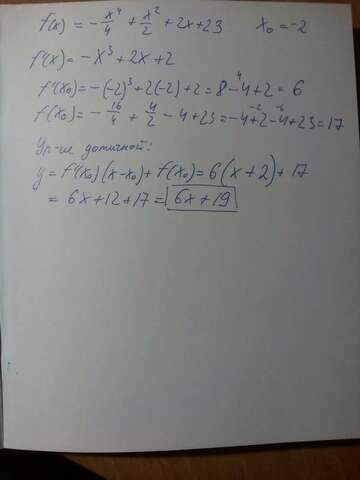 f(x) = -x⁴/4 + x²/2 + 2x + 23 x₀ = -2
f'(x) = -x³ + 2x + 2
f'(x₀) = -(-2)³ + 2(-2) + 2 = 8 - 4 + 2 = 6
4
f(x₀) = -16/4 + 4/2 - 4 + 23 = -4 + 2 - 4 + 23 = 17
-2 -6
Ур-ие дотичной:
y = f'(x₀)(x-x₀) + f(x₀) = 6(x+2) + 17
= 6x + 12 + 17 = 6x + 19